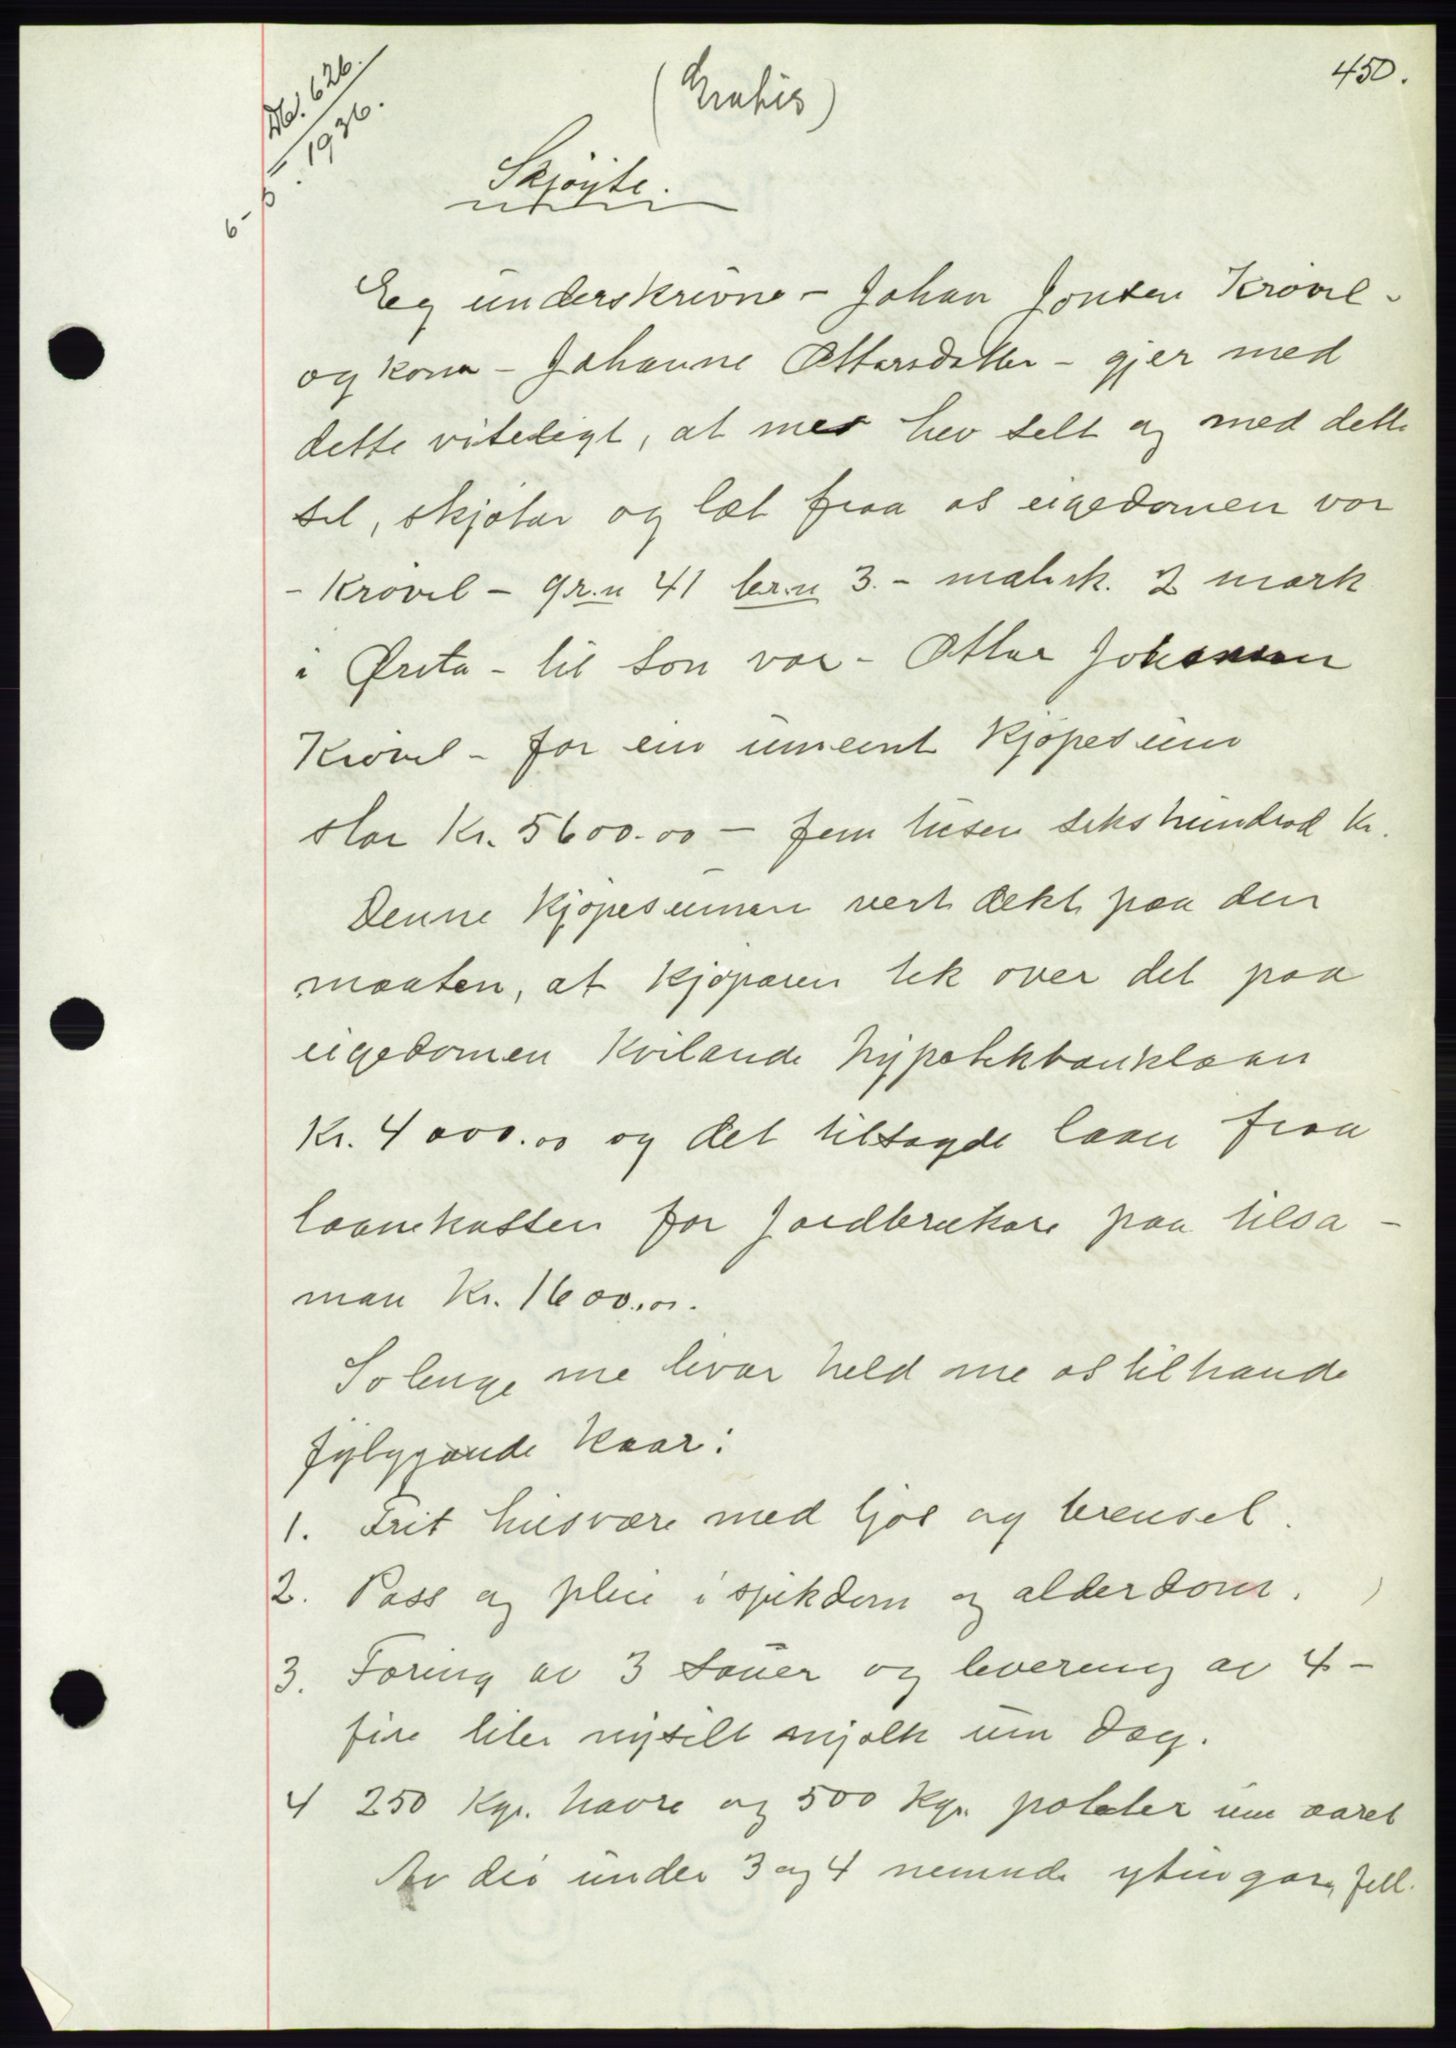 450.
Db. 626.
1936.
(Gratis)
Skjøyte.
Eg underskrivne - Johan Jonsen Krøvel -
og kona - Johanne Ottarsdatter - gjer med
dette viteligt, at me hev selt og med dette
sel, skjøtar og læt fraa os eigedomen vor
- Krøvel - gr.n 41 br.n 3. - matrsk. 2 mark
i Ørsta - til son vor - Ottar Johansen
Krøvel - for ein umeint kjøpesum
stor Kr. 5600.00 - fem tusen sekshundrad kr.
Denne kjøpesuman vert dekt paa den
maaten, at kjøparen tek over det paa
eigedomen kvilande hypotekbanklaan
Kr. 4000.00 og det tilsagde laan fraa
laanekassen for jordbrukare paa tilsa-
man Kr. 1600.00.
So lenge me livar held me os tilhande
fylgjande kaar:
1. Frit husvære med ljos og brensel.
2. Pass og pleie i sjukdom og alderdom.
3. Foring av 3 sauer og levering av 4 -
fire liter nysilt mjølk um dag.
4 250 kgr. havre og 500 kgr. poteter um aaret
Av dei under 3 og 4 nemnde ytingar, fell